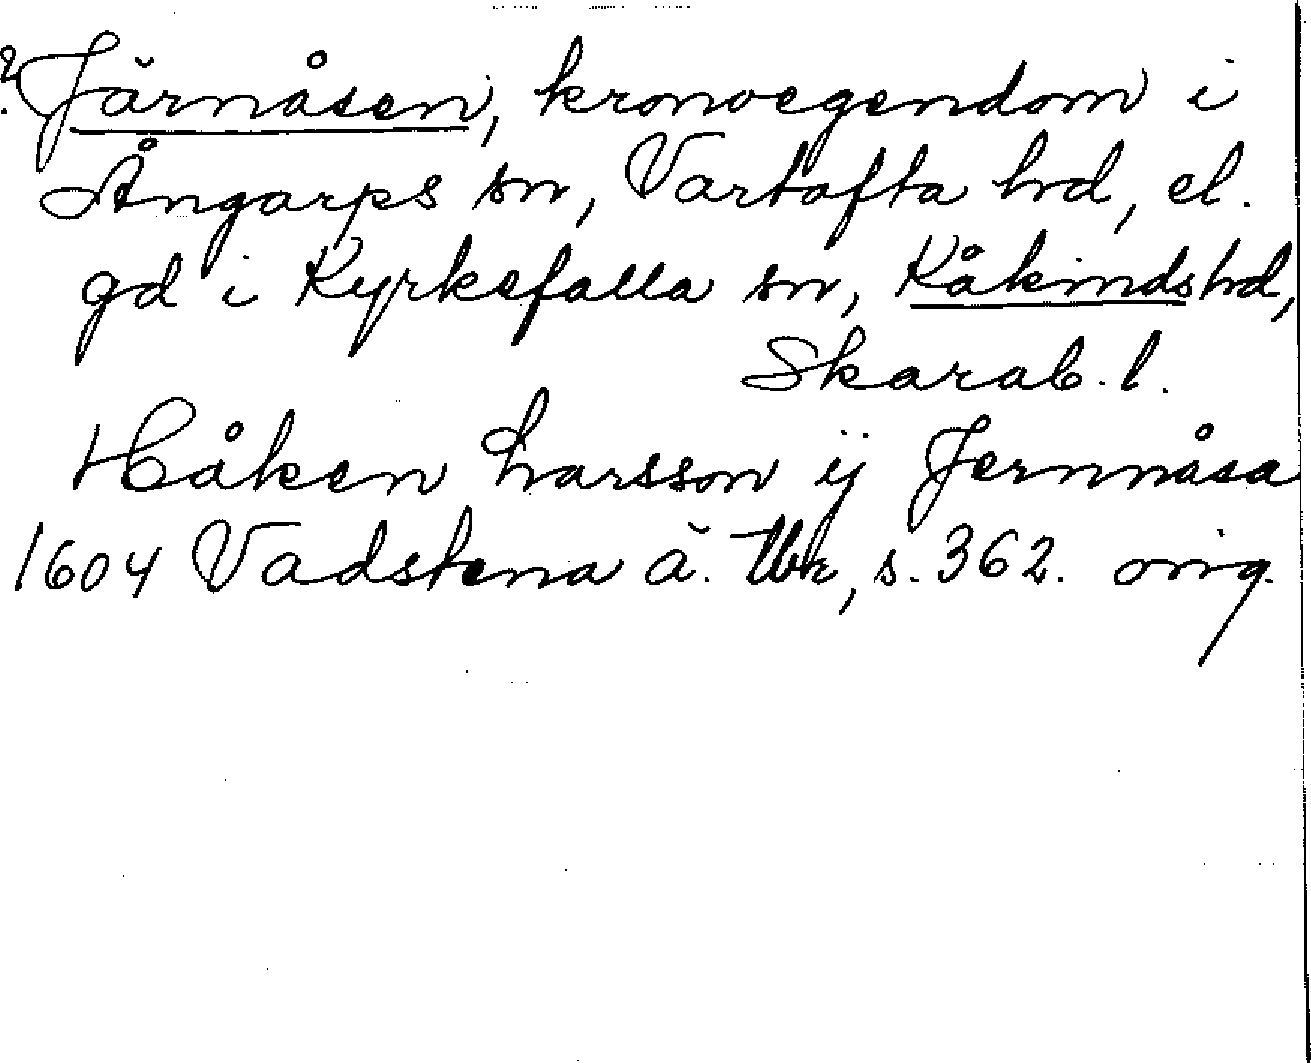 ? Järnåsen, kronoegendom i
Ångarps sn, Vartofta hd, el.
gd i Kyrkefalla sn, Kåkinds hd,
Skarab. l.
Håken Larsson ij Jernnåsa
1604 Vadstena ä. Tbr, s. 362. orig.